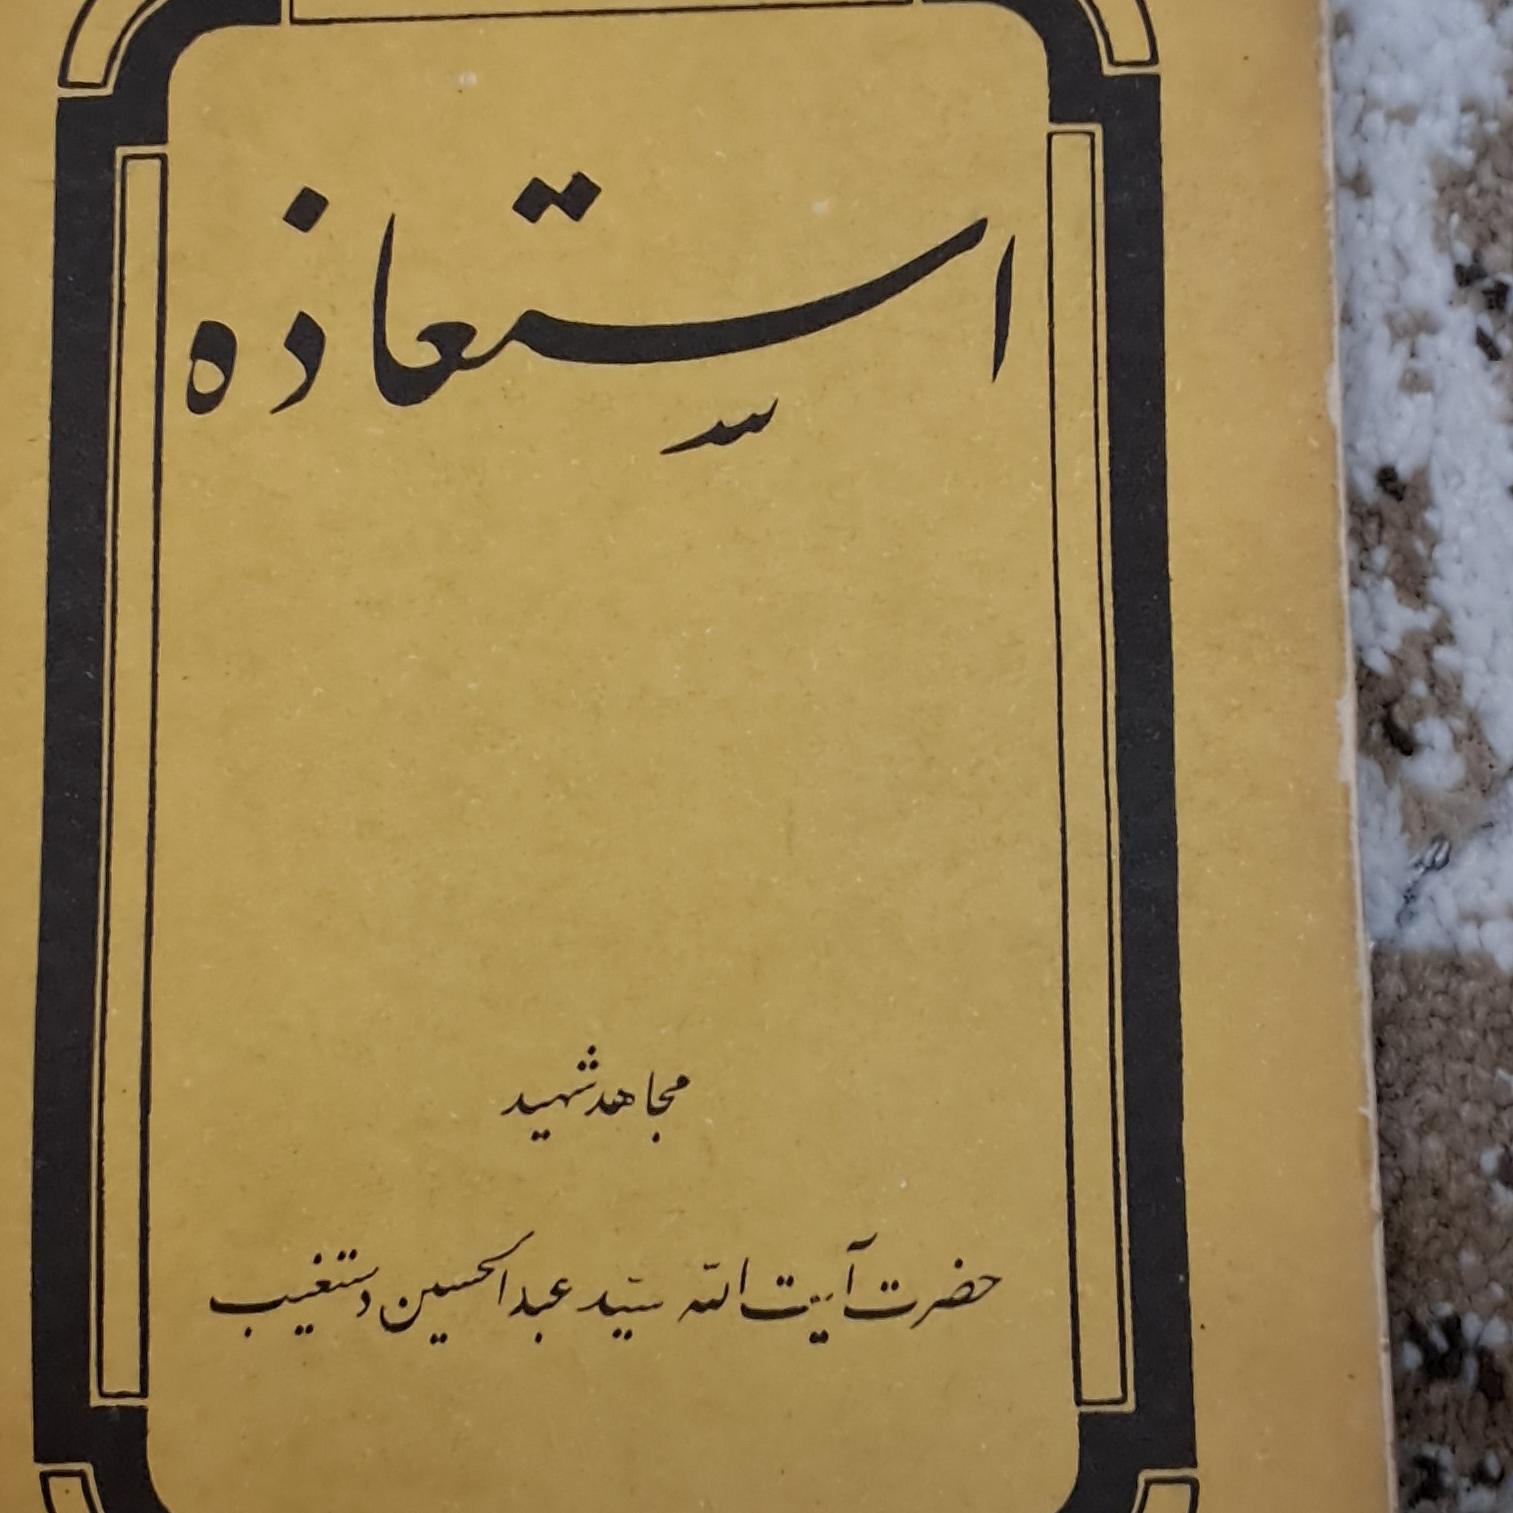 استعاذه
مجاهد شهید
حضرت آیت الله سیّد عبدالحسین دستغیب